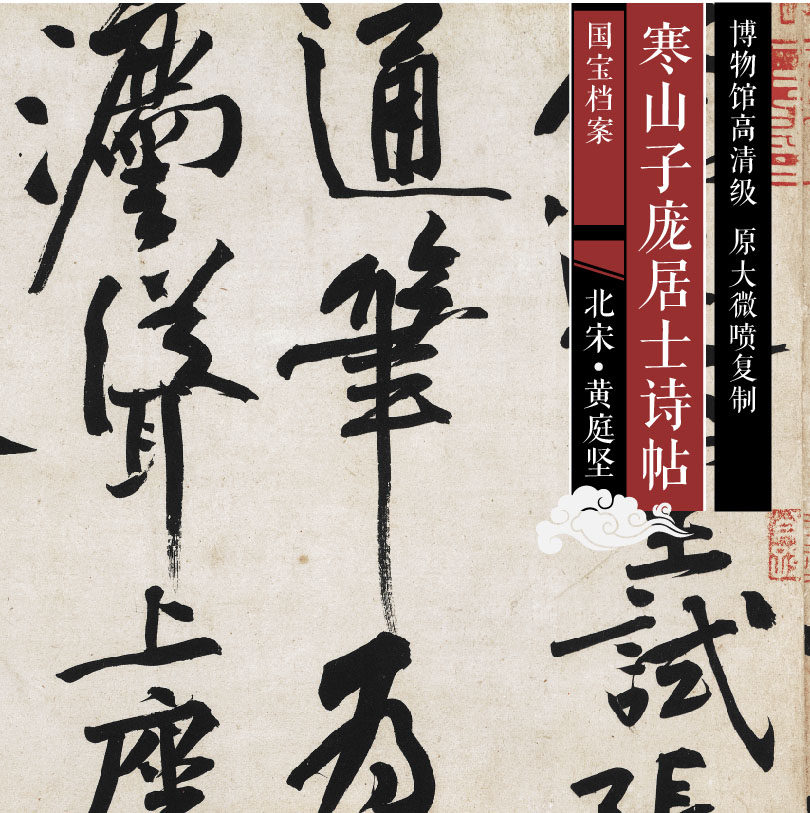 博物馆高清级 原大微喷复制
寒山子庞居士诗帖
国宝档案
北宋·黄庭坚
試張
通筆為
灋聳上座